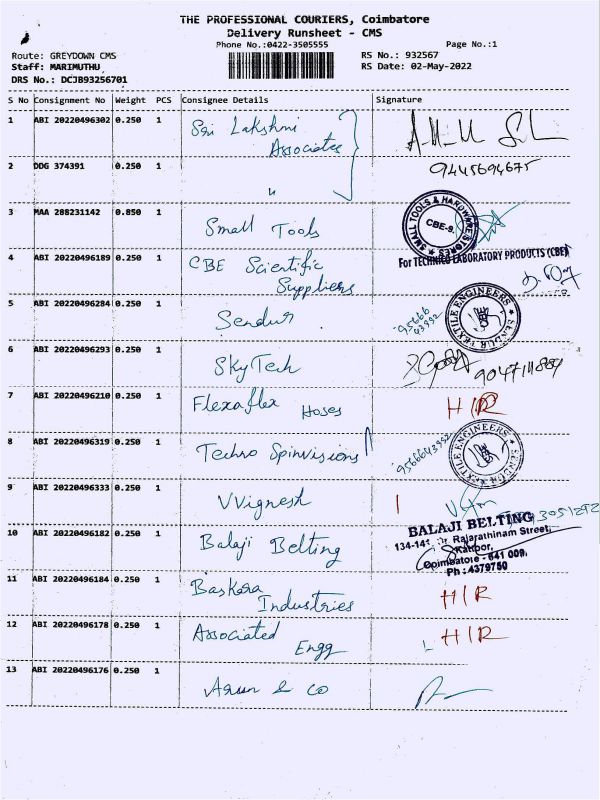 THE PROFESSIONAL COURIERS, Coimbatore
Delivery Runsheet - CMS
Phone No.:0422-3505555
Page No.:1
Route: GREYDOWN CMS
RS No.: 932567
Staff: MARIMUTHU
RS Date: 02-May-2022
DRS No.: DCJB93256701
S No Consignment No Weight PCS Consignee Details Signature
1 ABI 20220496302 0.250 1 Sri Lakshmi
Associates
2 DDG 374391 0.250 1 "
9445694675
3 MAA 288231142 0.850 1 Small Tools
SMALL TOOLS & HARDWARE STORES
CBE-9.
4 ABI 20220496189 0.250 1 CBE Scientific
Suppliers
For TECHNICO LABORATORY PRODUCTS (CBE)
5 ABI 20220496284 0.250 1 Sendur
95666
43992
SENDUR TEXTILE ENGINEERS
6 ABI 20220496293 0.250 1 SkyTech
7 ABI 20220496210 0.250 1 Flexaflex Hoses
H/R
8 ABI 20220496319 0.250 1 Techno Spinvisions
9566643992
SENDUR TEXTILE ENGINEERS
9 ABI 20220496333 0.250 1 VVignesh
10 ABI 20220496182 0.250 1 Balaji Belting
BALAJI BELTING
134-141, Rajarathinam Street,
Kattoor,
Coimbatore - 641 009.
Ph : 4379750
11 ABI 20220496184 0.250 1 Baskara
Industries
H/R
12 ABI 20220496178 0.250 1 Associated
Engg
H/R
13 ABI 20220496176 0.250 1 Arun & Co